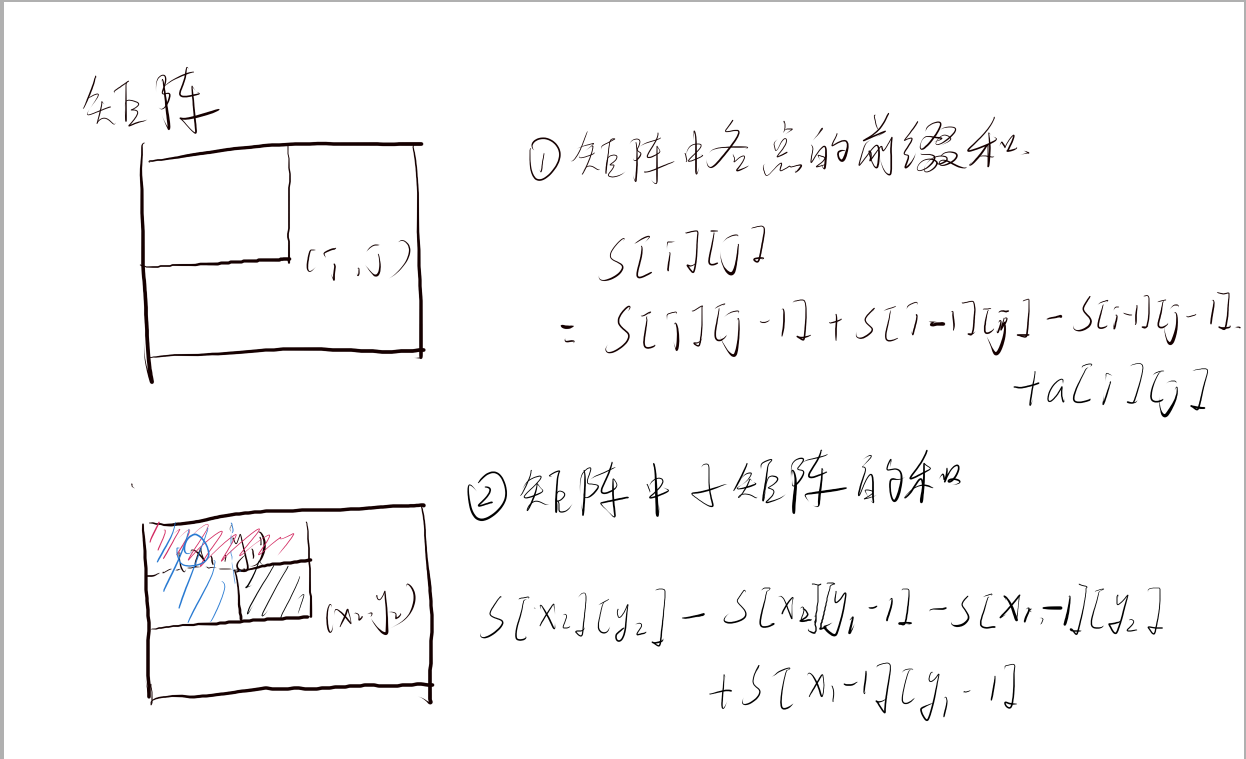 矩阵
①矩阵中各点的前缀和.
(i,j)
S[i][j]
= S[i][j-1] + S[i-1][j] - S[i-1][j-1].
+a[i][j]
②矩阵中子矩阵的和
(x₁, y₁)
(x₂,y₂)
S[x₂][y₂] - S[x₂][y₁-1] - S[x₁-1][y₂]
+S[x₁-1][y₁-1]